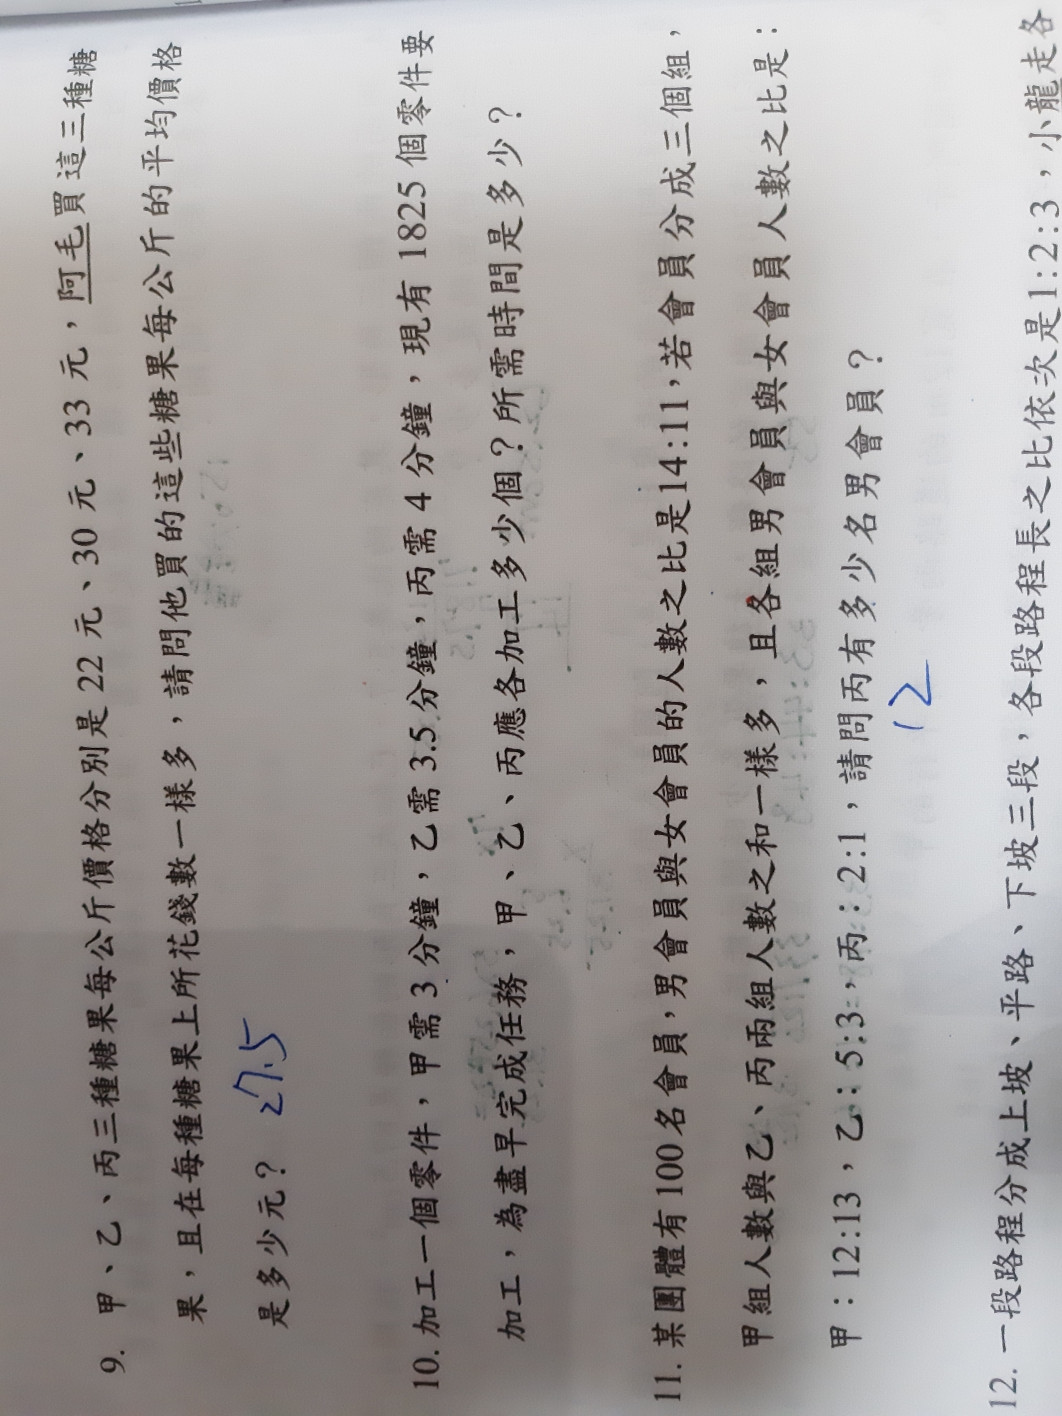 9. 甲、乙、丙三種糖果每公斤價格分別是 22 元、30 元、33 元，阿毛買這三種糖
果，且在每種糖果上所花錢數一樣多，請問他買的這些糖果每公斤的平均價格
是多少元？ 27.5
10. 加工一個零件，甲需 3 分鐘，乙需 3.5 分鐘，丙需 4 分鐘，現有 1825 個零件要
加工，為盡早完成任務，甲、乙、丙應各加工多少個？所需時間是多少？
11. 某團體有 100 名會員，男會員與女會員的人數之比是14:11，若會員分成三個組，
甲組人數與乙、丙兩組人數之和一樣多，且各組男會員與女會員人數之比是：
甲：12:13，乙：5:3，丙：2:1，請問丙有多少名男會員？
12
12. 一段路程分成上坡、平路、下坡三段，各段路程長之比依次是1:2:3，小龍走各